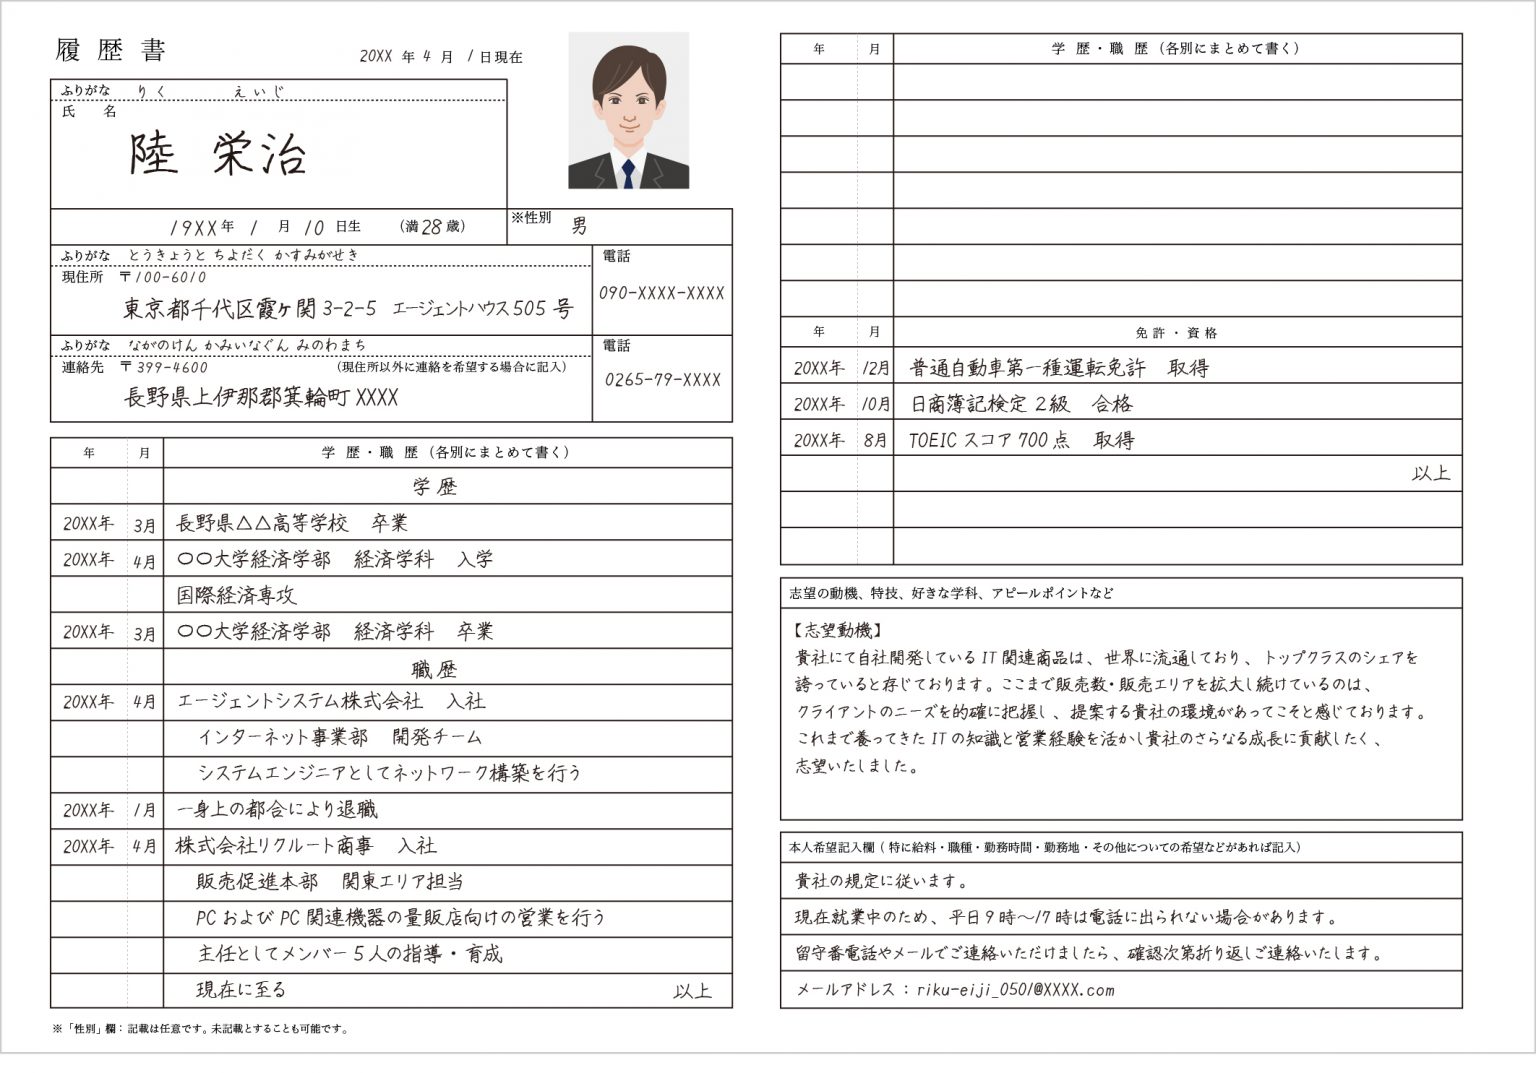 履 歴 書
20XX 年 4 月 1 日現在
ふりがな りく えいじ
氏 名
陸 栄治
19XX年 1 月 10 日生 (満28歳)
※性別 男
ふりがな とうきょうと ちよだく かすみがせき
現住所 〒100-6010
東京都千代区霞ヶ関 3-2-5 エージェントハウス 505 号
電話
090-XXXX-XXXX
ふりがな ながのけん かみいなぐん みのわまち
連絡先 〒399-4600 (現住所以外に連絡を希望する場合に記入)
長野県上伊那郡箕輪町 XXXX
電話
0265-79-XXXX
年 月 学 歴・職 歴(各別にまとめて書く)
学歴
20XX年 3月 長野県△△高等学校 卒業
20XX年 4月 〇〇大学経済学部 経済学科 入学
国際経済専攻
20XX年 3月 〇〇大学経済学部 経済学科 卒業
職歴
20XX年 4月 エージェントシステム株式会社 入社
インターネット事業部 開発チーム
システムエンジニアとしてネットワーク構築を行う
20XX年 1月 一身上の都合により退職
20XX年 4月 株式会社リクルート商事 入社
販売促進本部 関東エリア担当
PC および PC 関連機器の量販店向けの営業を行う
主任としてメンバー 5 人の指導・育成
現在に至る 以上
※「性別」欄：記載は任意です。未記載とすることも可能です。
年 月 学 歴・職 歴(各別にまとめて書く)
年 月 免許・資格
20XX年 12月 普通自動車第一種運転免許 取得
20XX年 10月 日商簿記検定 2級 合格
20XX年 8月 TOEIC スコア 700 点 取得
以上
志望の動機、特技、好きな学科、アピールポイントなど
【志望動機】
貴社にて自社開発している IT 関連商品は、世界に流通しており、トップクラスのシェアを
誇っていると存じております。ここまで販売数・販売エリアを拡大し続けているのは、
クライアントのニーズを的確に把握し、提案する貴社の環境があってこそと感じております。
これまで養ってきた IT の知識と営業経験を活かし貴社のさらなる成長に貢献したく、
志望いたしました。
本人希望記入欄(特に給料・職種・勤務時間・勤務地・その他についての希望などがあれば記入)
貴社の規定に従います。
現在就業中のため、平日 9 時〜17 時は電話に出られない場合があります。
留守番電話やメールでご連絡いただけましたら、確認次第折り返しご連絡いたします。
メールアドレス：riku-eiji_0501@XXXX.com